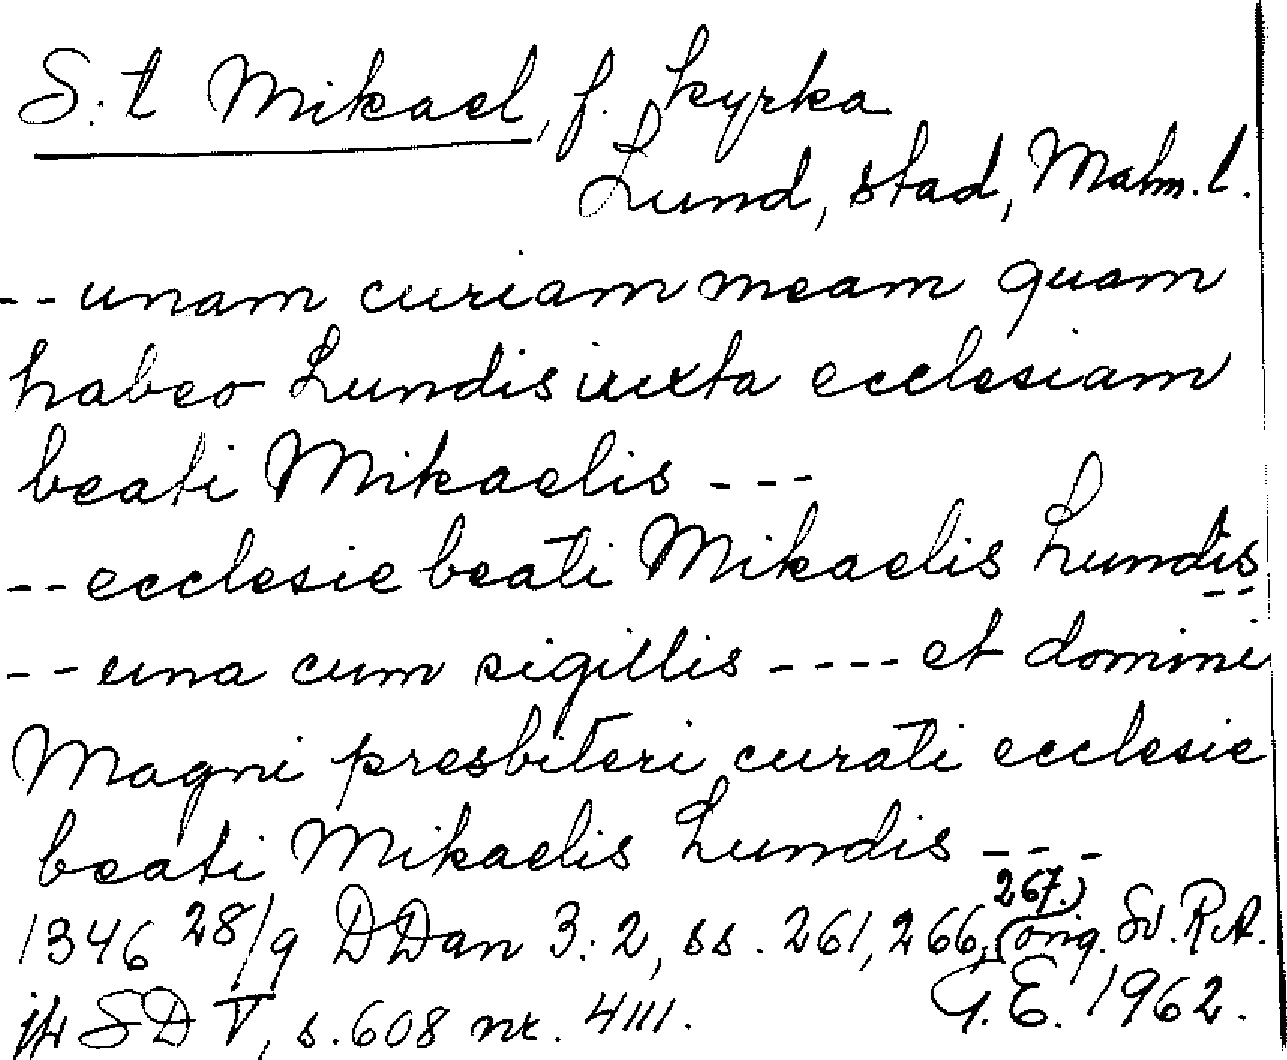 S:t Mikael, f. kyrka
Lund, stad, Malm. l.
-- unam curiam meam quam
habeo Lundis iuxta ecclesiam
beati Mikaelis ---
-- ecclesie beati Mikaelis Lundis
--
-- una cum sigillis ---- et domini
Magni presbiteri curati ecclesie
beati Mikaelis Lundis ---
1346 28/9 DDan 3:2, ss. 261, 266, 267. (orig. Sv. R.A.)
jfr SD V, s. 608 nr. 4111.
G.E. 1962.